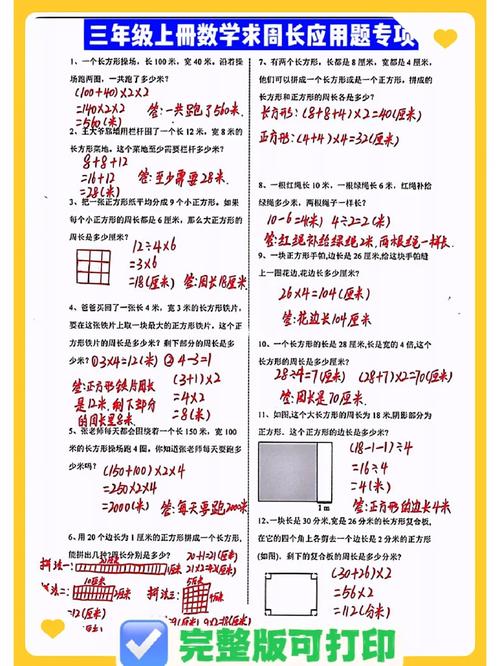 三年级上册数学求周长应用题专项
1、一个长方形操场，长 100 米，宽 40 米。沿着操
场跑两圈，一共跑了多少米？
(100+40)×2×2
=140×2×2
=560(米)
答：一共跑了560米.
2、王大爷靠墙用栏杆围了一个长 12 米，宽 8 米的
长方形菜地。这个菜地至少需要栏杆多少米？
8+8+12
=16+12
=28(米)
答：至少需要28米.
3、把一张正方形纸平均分成 9 个小正方形。如果
每个小正方形的周长都是 6 厘米，那么大正方形的
周长是多少厘米？
12÷4×6
=3×6
=18(厘米)
答：周长18厘米.
4、爸爸买回了一张长 4 米，宽 3 米的长方形铁片，
要在这张铁片上取一块最大的正方形铁片，这个正
方形铁片的周长是多少米？剩下部分的周长是多
少米？
①3×4=12(米)
②4-3=1
(3+1)×2
=4×2
=8(米)
答：正方形铁片周长
是12米.剩下部分
的周长是8米.
5、张老师每天都会围绕着一个长 150 米，宽 100
米的长方形操场跑 4 圈，你知道张老师每天要跑多
少米吗？
(150+100)×2×4
=250×2×4
=2000(米)
答：每天要跑2000米
6、用 20 个边长为 1 厘米的正方形拼成一个长方形，
能拼出几种？周长分别是多少？
拼法一：
20厘米
1厘米
10厘米
2厘米
5厘米
7、有两个长方形，长都是 8 厘米，宽都是 4 厘米，
他们可以拼成一个长方形或是一个正方形，拼成的
长方形和正方形的周长各是多少？
长方形：(8+8+4)×2=40(厘米)
正方形：(4+4)×4=32(厘米)
8、一根红绳长 10 米，一根绿绳长 6 米，红绳补给
绿绳多少米，两根绳子一样长？
10-6=4(米) 4÷2=2(米)
答：红绳补给绿绳2米，两根绳一样长.
9、一块正方形手帕,边长是 26 厘米,给这块手帕缝
上一圈花边,花边长多少厘米？
26×4=104(厘米)
答：花边长104厘米
10、一个长方形的长是 28 厘米,长是宽的 4 倍,这个
长方形的周长是多少厘米？
28÷4=7(厘米) (28+7)×2=70(厘米)
答：周长是70厘米.
11、如图,这个大长方形的周长为 18 米,阴影部分为
正方形．这个正方形的边长是多少米？
(18-1-1)÷4
=16÷4
=4(米)
答：正方形的边长4米
1 m
12、一块长是 30 分米,宽是 26 分米的长方形复合板,
在它的四个角上各剪去一个边长是 2 分米的正方形
(如图)．剩下的复合板的周长是多少分米？
(30+26)×2
=56×2
=112(分米)
完整版可打印